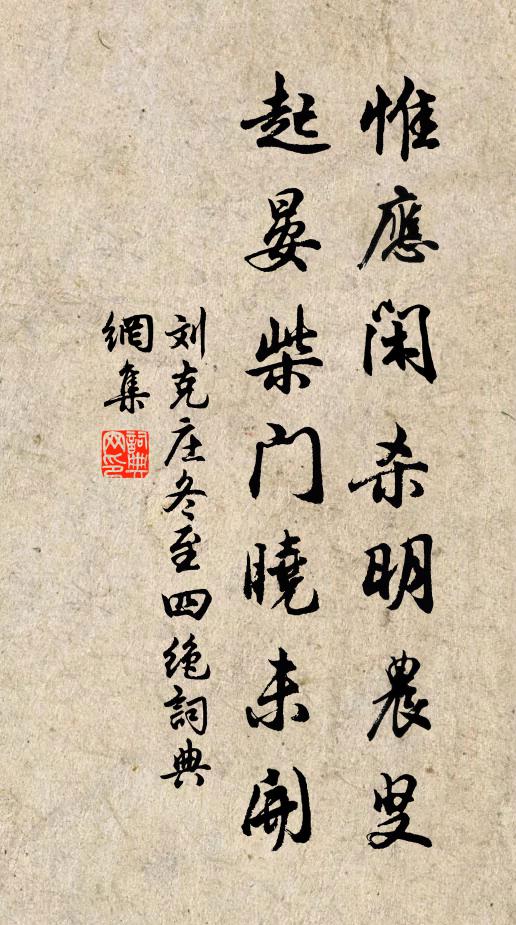 惟應閑杀明農叟
起晏柴門曉未開
刘克庄冬至四絶詞典
網集
詞典網印